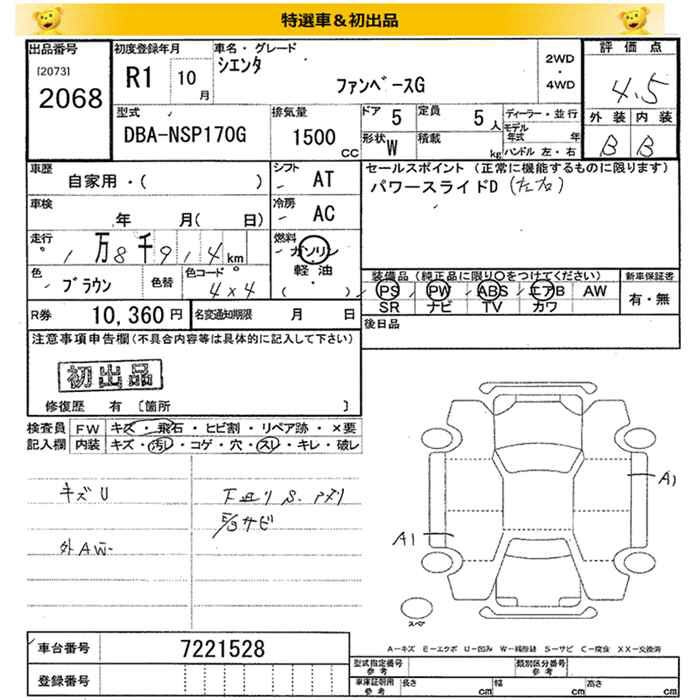 特選車＆初出品
出品番号
[2073]
2068
初度登録年月
R1 10月
車名・グレード
シエンタ
ファンベースG
2WD
・
4WD
評価点
4.5
外装 内装
B B
型式
DBA-NSP170G
排気量
1500
CC
ドア 5
定員 5人
形状 W
積載 kg
ディーラー・並行
モデル年式 年
ハンドル 左・右
車歴
自家用・( )
シフト
AT
車検
年 月( 日)
冷房
AC
走行
1万8千914km
燃料
ガソリン
・
軽油
( )
色
ブラウン
色替
色コード
4x4
セールスポイント (正常に機能するものに限ります)
パワースライドD (左右)
装備品 (純正品に限り○をつけてください)
新車保証書
PS PW ABS エアB AW
有・無
SR ナビ TV カワ
R券 10,360円
名変通知期限 月 日
後日品
注意事項申告欄(不具合内容等は具体的に記入して下さい)
初出品
修復歴 有 [箇所 ]
検査員
記入欄
FW キズ・飛石・ヒビ割・リペア跡・×要
内装 キズ・汚レ・コゲ・穴・スレ・キレ・破レ
キズU
下廻りS.
サビ
外AW
A1
A1
スペア
A－キズ E－エクボ U－凹み W－補修跡 S－サビ C－腐食 XX－交換済
車台番号 7221528
登録番号
型式指定番号
参考
類別区分番号
参考
車庫証明用
参考
長さ cm 幅 cm 高さ cm